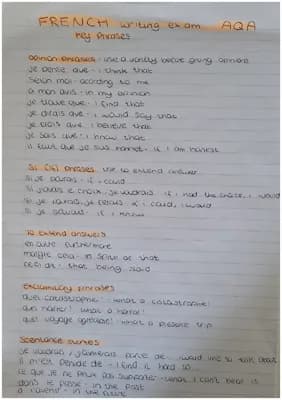 FRENCH writing exam AQA
key phrases
opinion phrases - use a variety before giving opinions
je pense que - i think that
selon moi - according to me
a mon avis - in my opinion
je trouve que - i find that
je dirais que - i would say that
je crois que - i believe that
je sais que - i know that
il faut que je suis honnet - if i am honest
Si (if) phrases use to extend answer
si je pouvais - if i could
si j'avais le choix, je voudrais - if i had the choice, i would
si je, je ferais - if i could, i would
si je savais - if i knew
To extend answers
en outre - furthermore
malgré cela - in spite of that
ceci dit - that being said
Exclamatory phrases
quel catastrophe! - what a catastrophe!
quel horreur! what a horror!
quel voyage agréable! - what a pleasant trip
Sentence starters
je voudrais / j'aimerais parle de - i would like to talk about
il m'est penible de - i find it hard to
ce que je ne peux pas supporter - what i can't bear is
dans le passé - in the past
a l'avenir - in the future